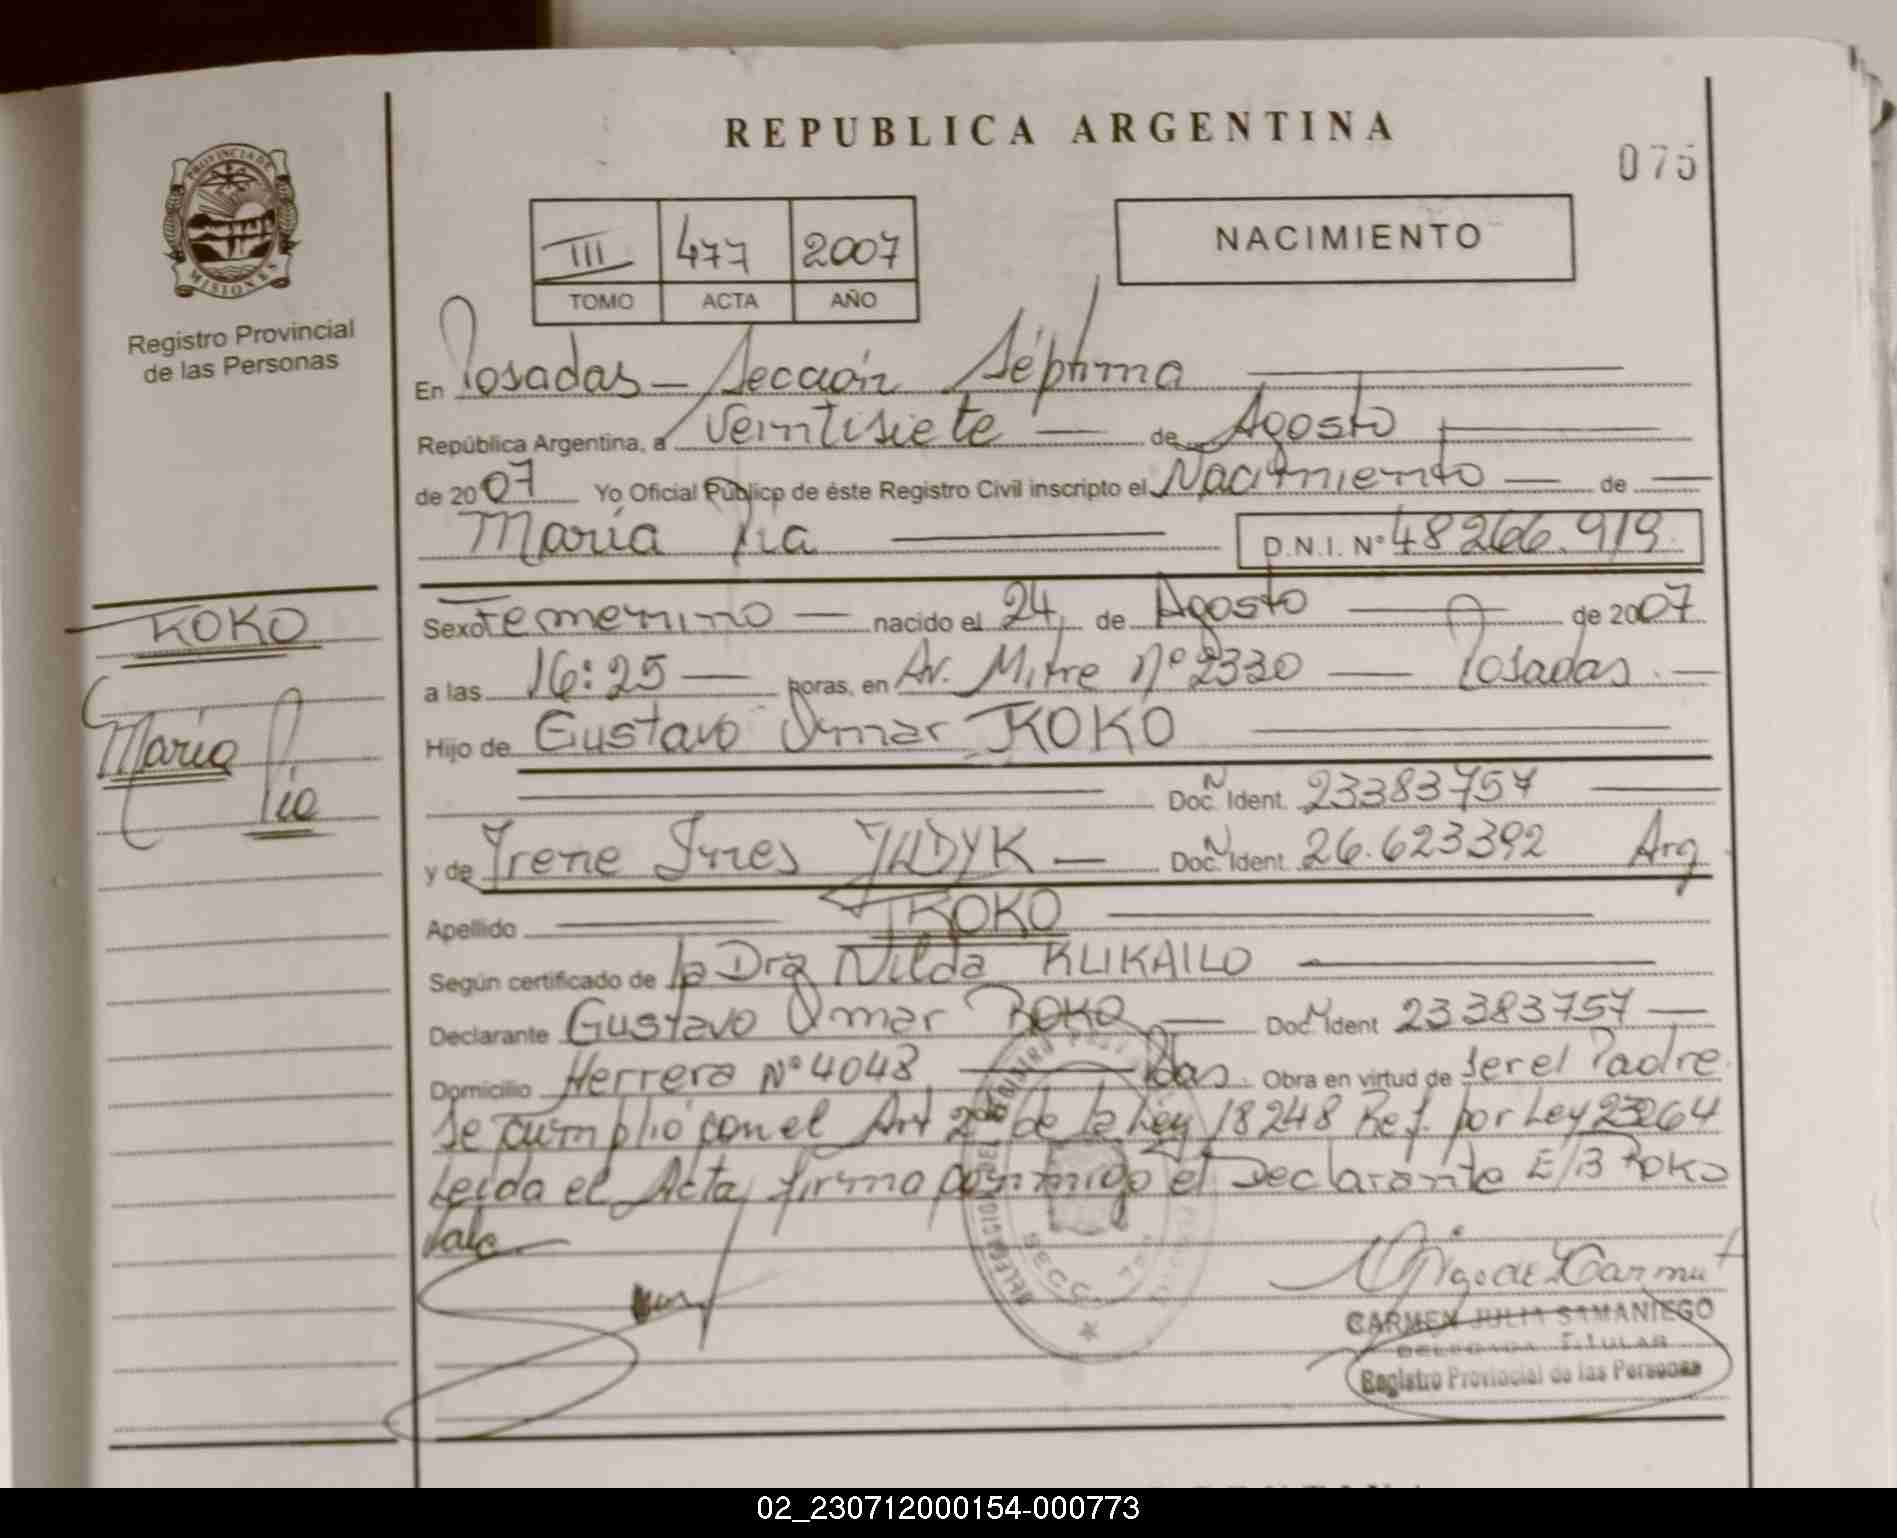 REPUBLICA ARGENTINA
075
PROVINCIA DE
MISIONES
Registro Provincial
de las Personas
III 477 2007
TOMO ACTA AÑO
NACIMIENTO
En Posadas - Sección Séptima
República Argentina, a Veintisiete de Agosto
de 2007 Yo Oficial Público de éste Registro Civil inscripto el Nacimiento de
María Pia D.N.I. Nº 48266.919
KOKO
María Pia
Sexo Femenino nacido el 24 de Agosto de 2007
a las 16:25 horas, en Av. Mitre Nº 2330 Posadas.
Hijo de Gustavo Omar KOKO
Doc. Ident. 23383757
y de Irene Ines JUDYK Doc. Ident. 26.623392 Arg
Apellido KOKO
Según certificado de la Dra Nilda KUKAILO
Declarante Gustavo Omar ROKO Doc. Ident 23383757
Domicilio Herrera Nº 4048 Pdas. Obra en virtud de ser el Padre
Se cumplió con el Art 2º de la Ley 18248 Ref. por Ley 23264
Leída el Acta, firma conmigo el Declarante E/B ROKO
Vale
CARMEN JULIA SAMANIEGO
DELEGADA TITULAR
Registro Provincial de las Personas
02_230712000154-000773